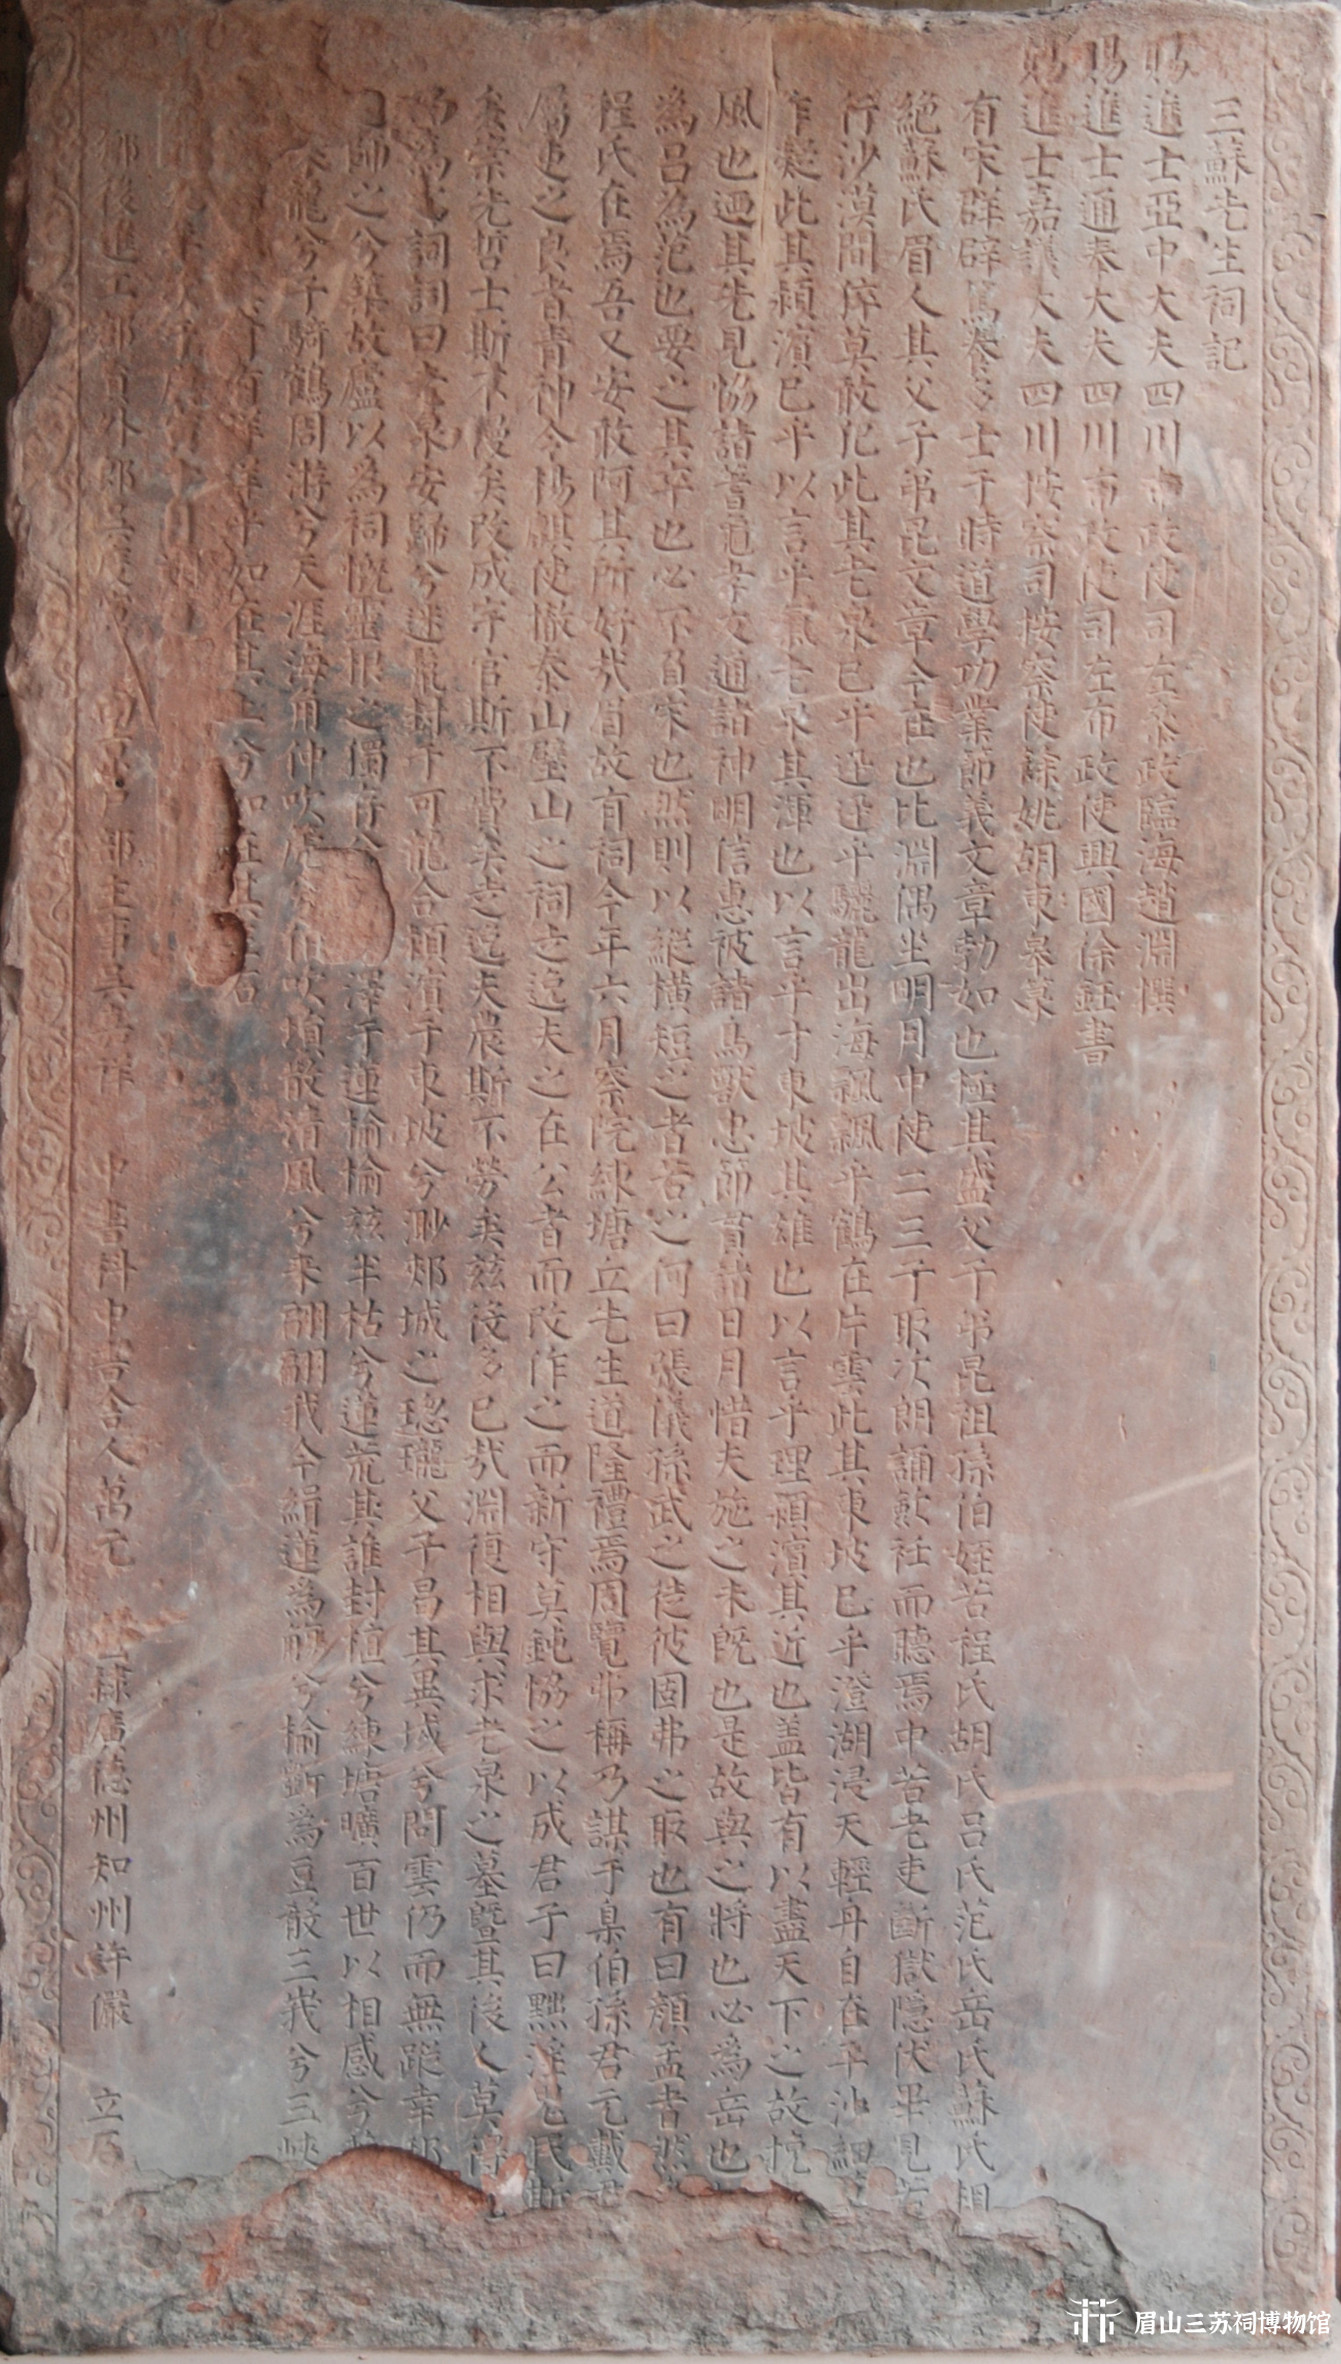 三蘇先生祠記
賜進士亞中大夫四川布政使司左參政臨海趙淵撰
賜進士通奉大夫四川布政使司左布政使興國徐鈺書
賜進士嘉議大夫四川按察司按察使餘姚胡東皋篆
有宋群辟篤養多士于時道學功業節義文章勃如也極其盛父子弟昆祖孫伯姪若程氏胡氏呂氏范氏岳氏蘇氏相
絕蘇氏眉人其父子弟昆文章今在也比淵隅坐明月中使二三子取次朗誦歛衽而聽焉中若老吏斷獄隱伏畢見若
行沙漠間倅莫敢犯此其老泉已乎迅迅乎驪龍出海飄飄乎鶴在片雲此其東坡已乎澄湖浸天輕舟自在平沙細
作凝此其潁濱已乎以言乎氣老泉其渾也以言乎才東坡其雄也以言乎理潁濱其近也盖皆有以盡天下之故挽
風也迺其先見協諸蓍龜孝友通諸神明信惠被諸鳥獸忠節貫諸日月惜夫施之未既也是故與之將也必為岳也
為呂為范也要之其卒也必不負宋也然則以縱橫短之者若之何曰張儀孫武之徒彼固弗之取也有曰顏孟者然
程氏在焉吾又安敢阿其所好哉眉故有祠今年六月察院練塘立先生道隆禮焉周覽弗稱乃謀于臬伯孫君元戴君
屬吏之良者青神令楊麒使撤泰山壁山之祠老逸夫之在公者而改作之而新守莫鈍協之以成君子曰黜淫鬼氏斯
矣崇先哲士斯不設矣改成宇官斯不費矣老逸夫農斯不勞矣茲後多已哉淵復相與求老泉之墓暨其後人莫得
為之詞詞曰老泉安歸兮迷龍封于可龍合潁濱于東坡兮渺郟城之璁瓏父子昌其異域兮問雲仍而無蹤幸
師之兮築故廬以為祠慨靈眼之獨存 澤于連榆榆茲半枯兮蓮荒其誰封植兮練塘曠百世以相感兮
龍兮子騎鶴周游兮天涯海角仲吹篪兮伯吹塤散清風兮來翩翩我今絹蓮為觴兮榆斲為豆殽三峩兮三峽
洋洋乎如在其上兮如在其左右
十月
鄉後進工部員外郎 戶部主事 中書科中書舍人萬元 直隸廣德州知州許儼 立石
眉山三苏祠博物馆